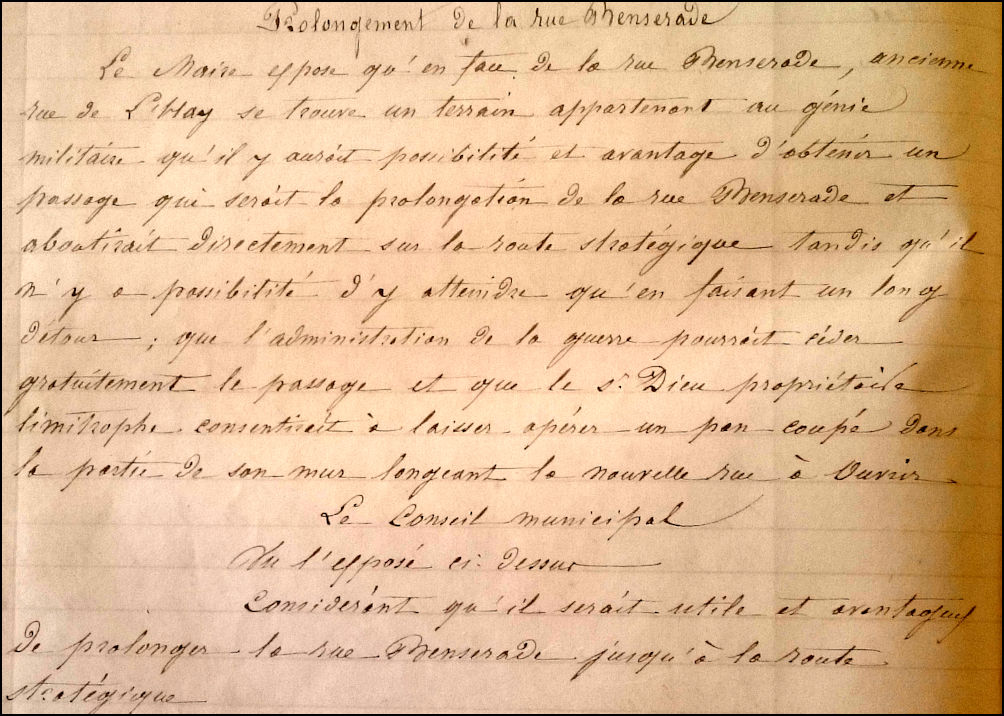 Prolongement de la rue Benserade
Le Maire expose qu'en face de la rue Benserade, ancienne
rue de se trouve un terrain appartenant au génie
militaire qu'il y aurait possibilité et avantage d'obtenir un
passage qui serait la prolongation de la rue Benserade et
aboutirait directement sur la route stratégique tandis qu'il
n'y a possibilité d'y atteindre qu'en faisant un long
détour ; que l'administration de la guerre pourrait céder
gratuitement le passage et que le Sr Dieu propriétaire
limitrophe consentirait à laisser opérer un pan coupé dans
la partie de son mur longeant la nouvelle rue à ouvrir
Le Conseil municipal
Vu l'exposé ci-dessus
Considérant qu'il serait utile et avantageux
de prolonger la rue Benserade jusqu'à la route
stratégique